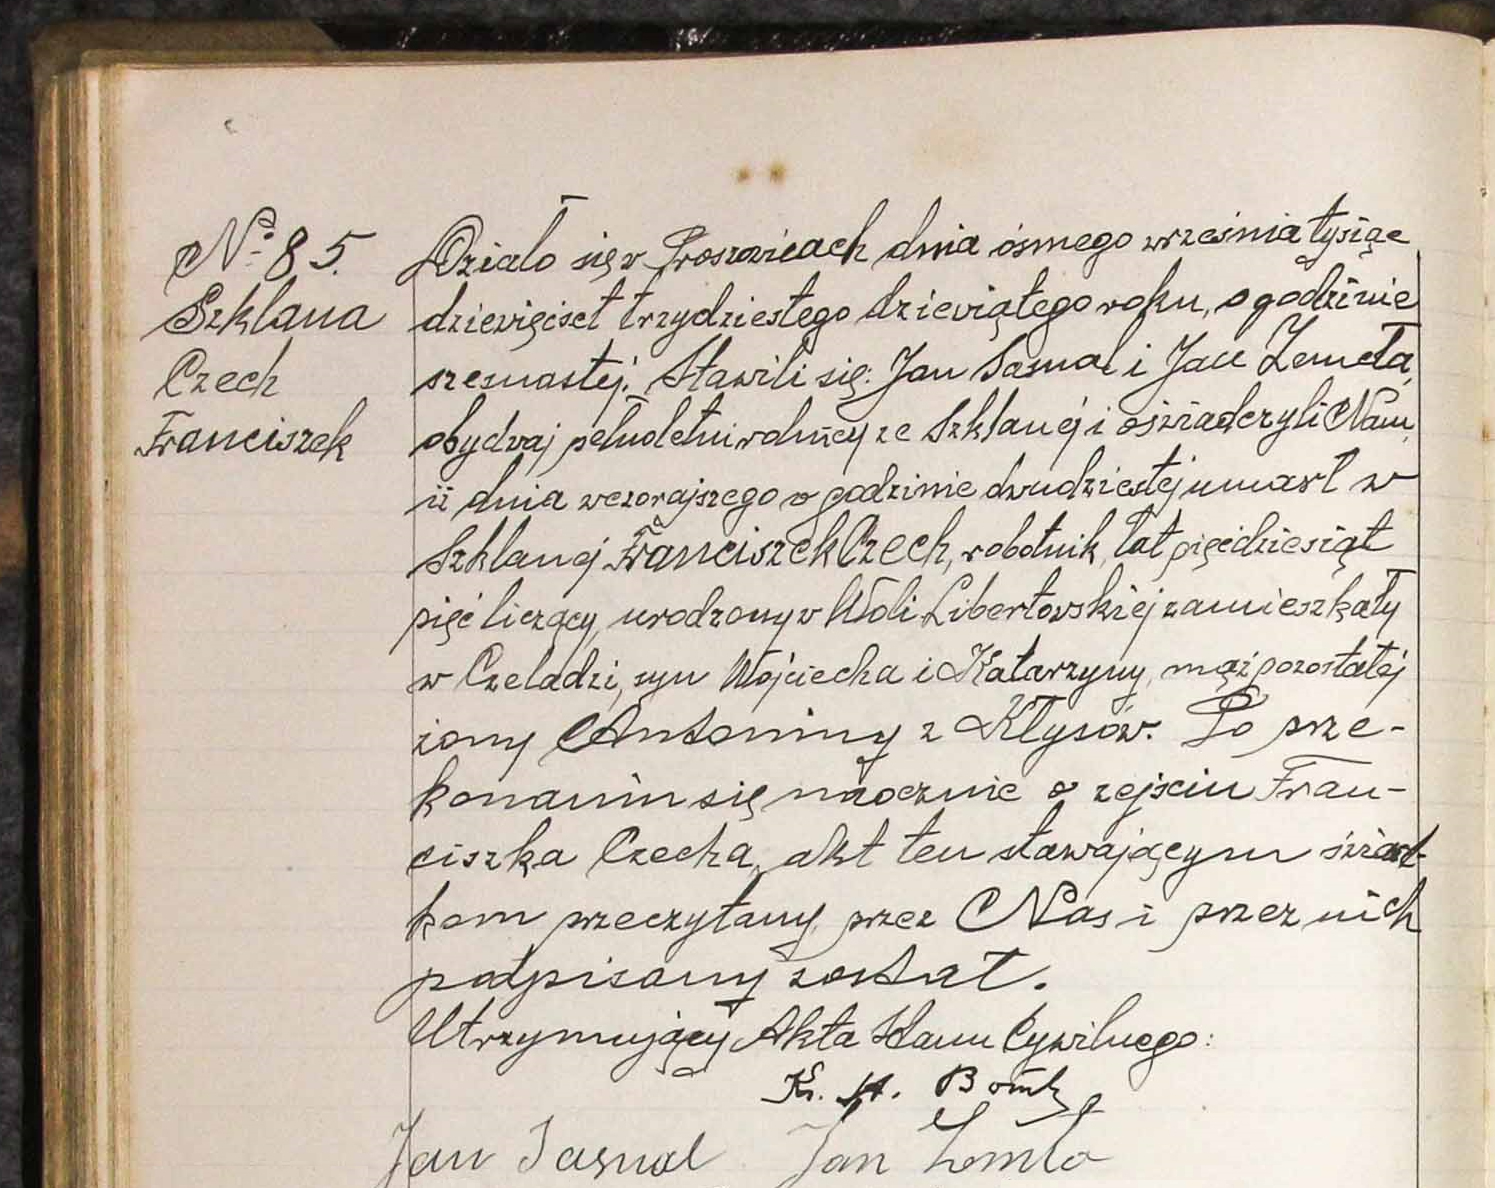 № 85.
Szklana
Czech
Franciszek
Działo się w Proszowicach dnia ósmego września tysiąc
dziewięćset trzydziestego dziewiątego roku, o godzinie
szesnastej. Stawili się: Jan Sasnal i Jan Zemeła,
obydwaj pełnoletni rolnicy ze Szklanej i oświadczyli Nam,
iż dnia wczorajszego o godzinie dwudziestej umarł w
Szklanej Franciszek Czech, robotnik, lat pięćdziesiąt
pięć liczący, urodzony w Woli Libertowskiej zamieszkały
w Czeladzi, syn Wojciecha i Katarzyny, mąż pozostałej
żony Antoniny z Kłysów. Po prze-
konaniu się naocznie o zejściu Fran-
ciszka Czecha, akt ten stawającym świad-
kom przeczytany, przez Nas i przez nich
podpisany został.
Utrzymujący Akta Stanu Cywilnego:
Ks. A.
Jan Sasnal Jan